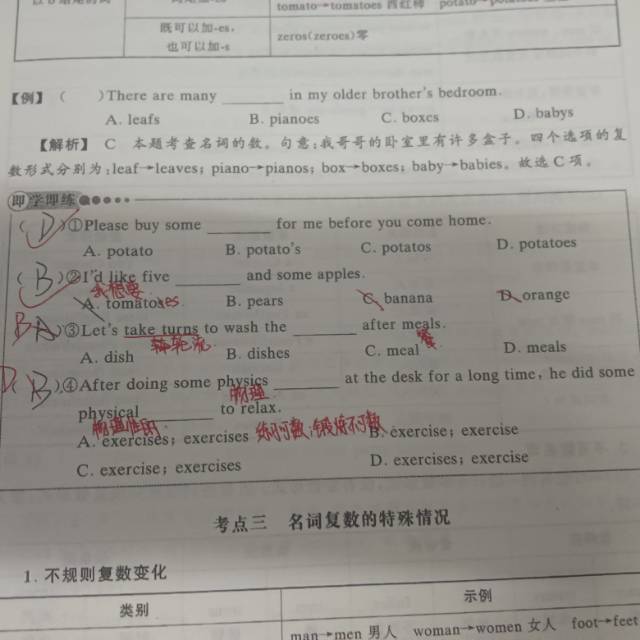 tomato→tomatoes 西红柿
既可以加-es， zeros(zeroes)零
也可以加-s
【例】（ ）There are many ______ in my older brother's bedroom.
A. leafs B. pianoes C. boxes D. babys
【解析】 C 本题考查名词的数。句意：我哥哥的卧室里有许多盒子。四个选项的复
数形式分别为：leaf→leaves；piano→pianos；box→boxes；baby→babies。故选C项。
即学即练
( D )①Please buy some ______ for me before you come home.
A. potato B. potato's C. potatos D. potatoes
( B )②I'd like five ______ and some apples.
我想要
A. tomatos es B. pears C. banana D. orange
B A )③Let's take turns to wash the ______ after meals.
轮流 餐
A. dish B. dishes C. meal D. meals
D ( B )④After doing some physics ______ at the desk for a long time, he did some
物理
physical ______ to relax.
A. exercises；exercises 练习可数；锻炼不可数 B. exercise；exercise
C. exercise；exercises D. exercises；exercise
考点三 名词复数的特殊情况
1. 不规则复数变化
类别 示例
man→men 男人 woman→women 女人 foot→feet